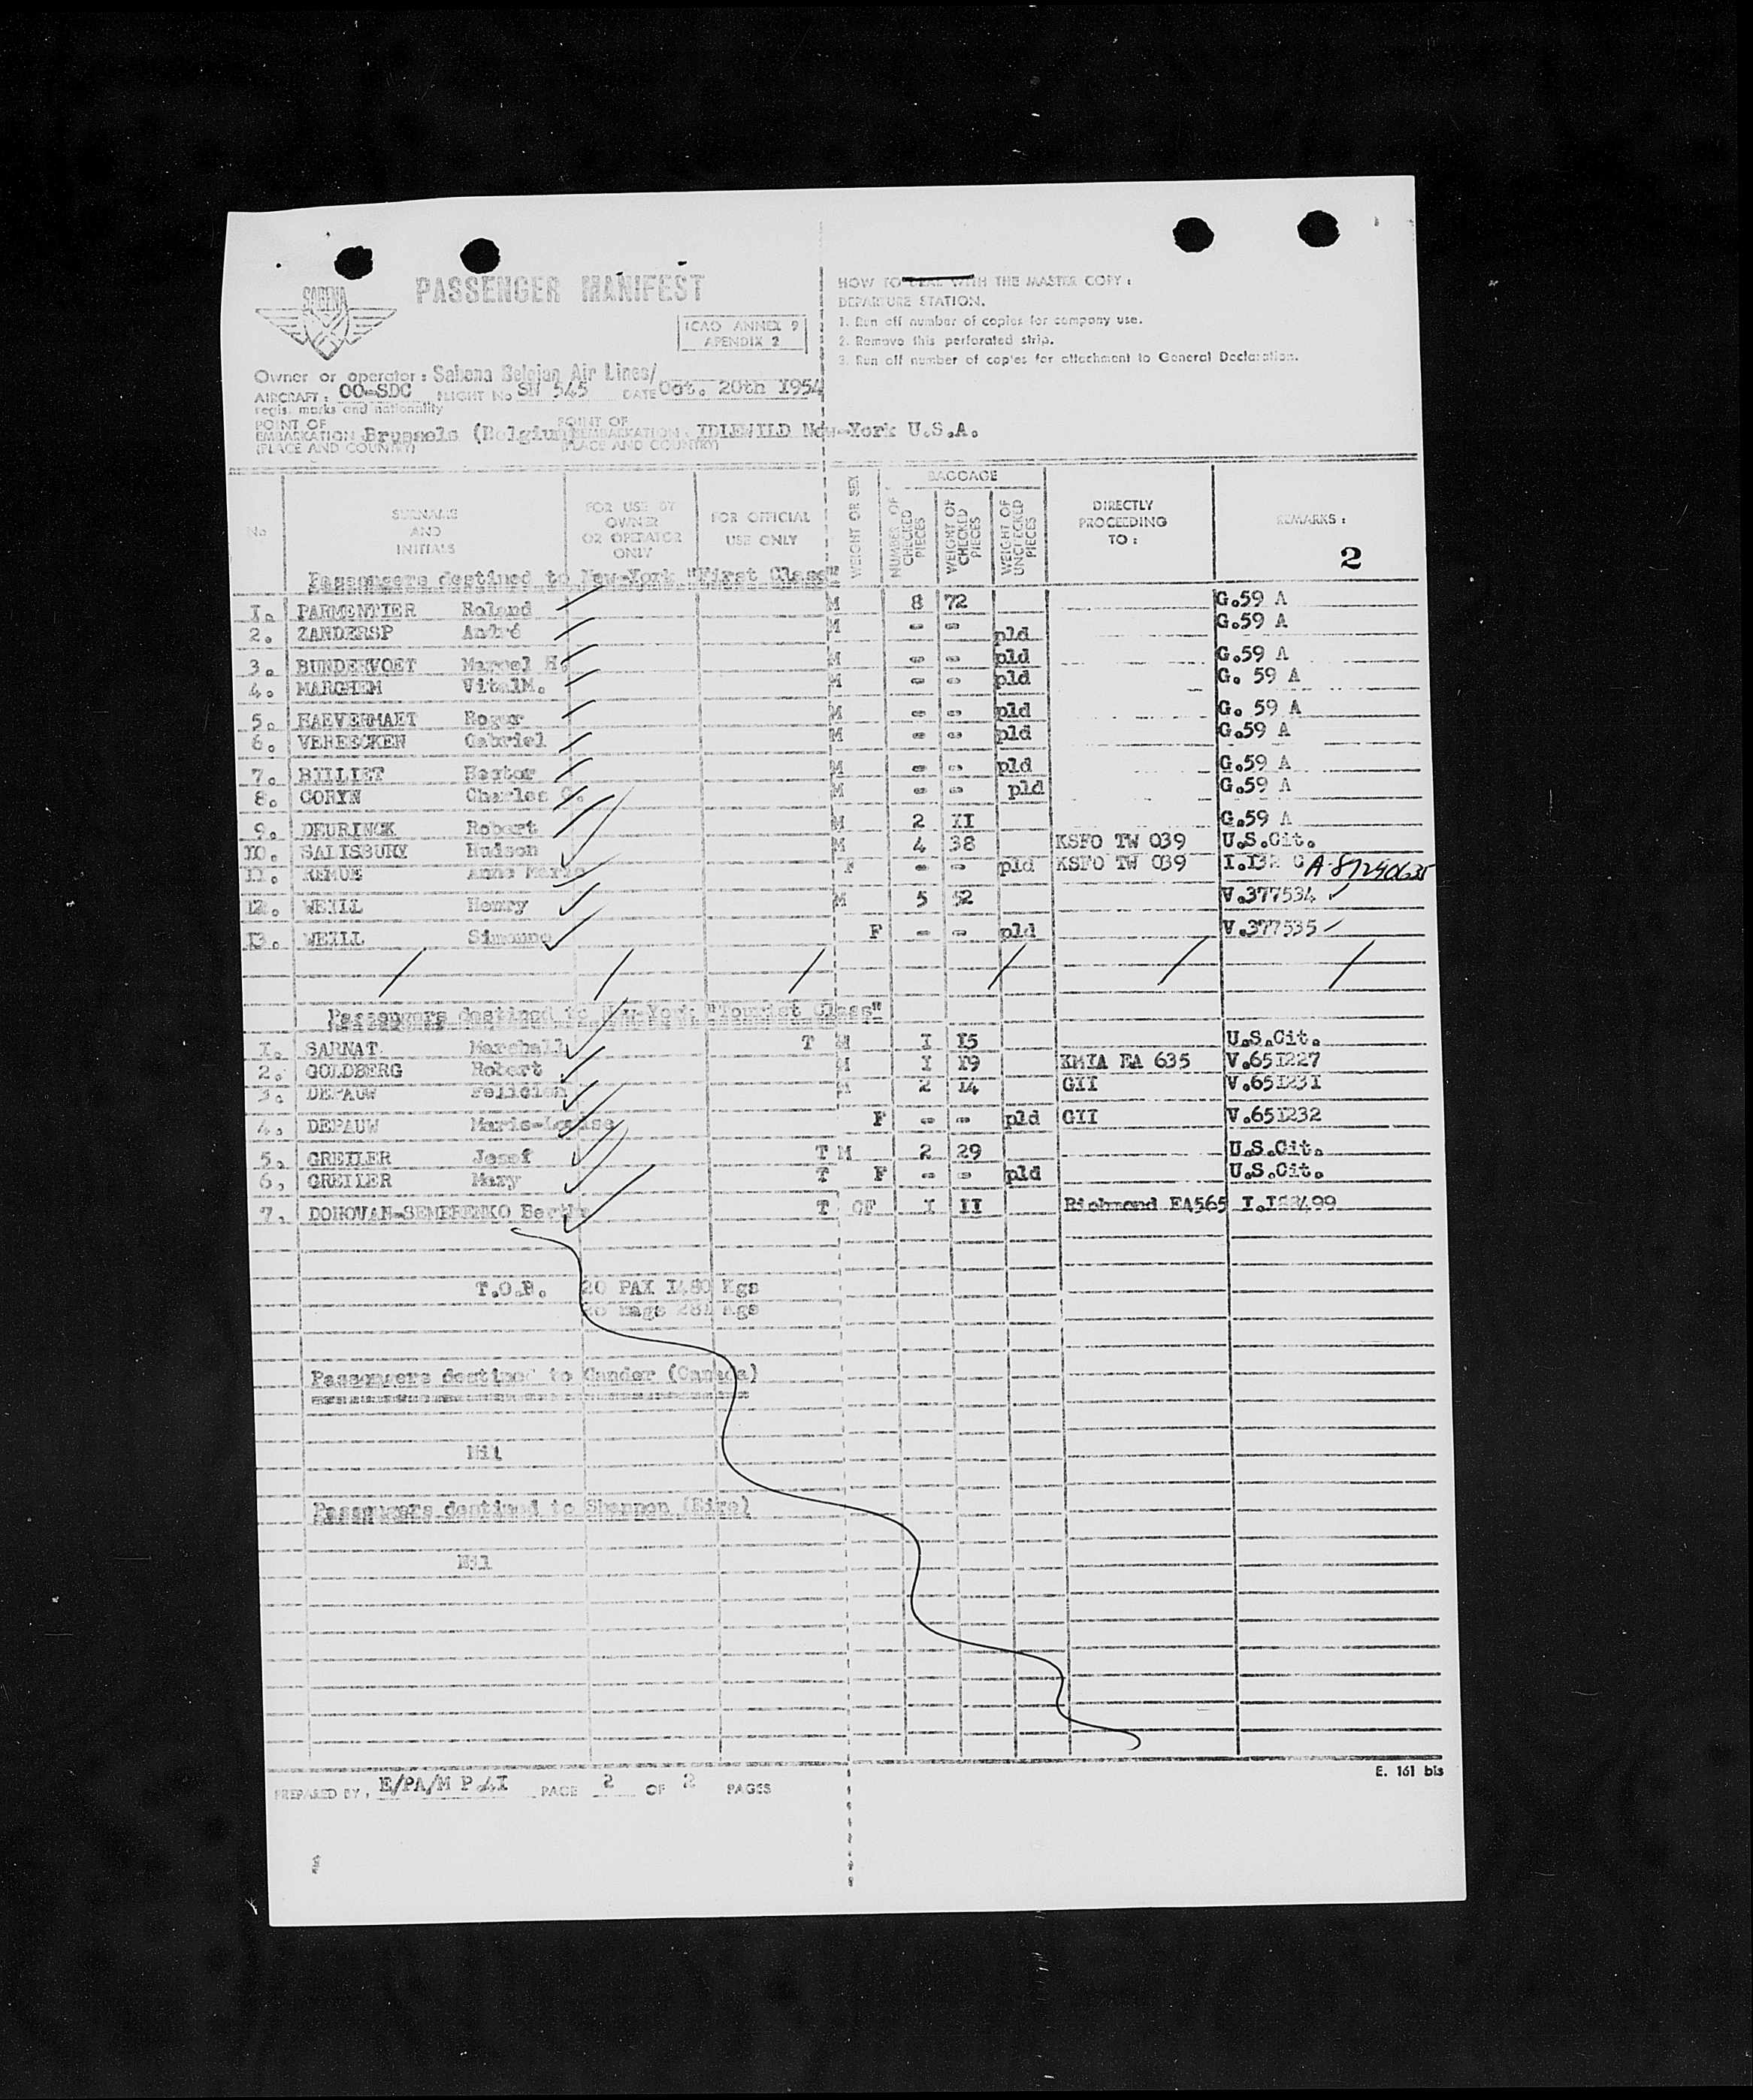 SABENA
PASSENGER MANIFEST
ICAO ANNEX 9
APENDIX 2
HOW TO DEAL WITH THE MASTER COPY :
DEPARTURE STATION.
1. Run off number of copies for company use.
2. Remove this perforated strip.
3. Run off number of copies for attachment to General Declaration.
Owner or operator : Sabena Belgian Air Lines/
AIRCRAFT : OO-SDC FLIGHT No SN 545 DATE Oct. 20th 1954
regis. marks and nationality
POINT OF EMBARKATION Brussels (Belgium) POINT OF DEBARKATION : IDLEWILD New-York U.S.A.
(PLACE AND COUNTRY) (PLACE AND COUNTRY)
No SURNAME AND INITIALS FOR USE BY OWNER OR OPERATOR ONLY FOR OFFICIAL USE ONLY WEIGHT OR SEX BAGGAGE NUMBER OF CHECKED PIECES WEIGHT OF CHECKED PIECES WEIGHT OF UNCHECKED PIECES DIRECTLY PROCEEDING TO : REMARKS :
2
Passengers destined to New-York "First Class"
1. PARMENTIER Roland M 8 72 G.59 A
2. ZANDERSP André M - - pld G.59 A
3. BUNDERVOET Marcel H. M - - pld G.59 A
4. MARGHEM VitalM. M - - pld G. 59 A
5. HAEVERMAET Roger M - - pld G. 59 A
6. VEREECKEN Gabriel M - - pld G.59 A
7. BILLIET Hector M - - pld G.59 A
8. CORYN Charles C. M - - pld G.59 A
9. DEURINCK Robert M 2 II G.59 A
10. SALISBURY Hudson M 4 38 KSFO TW 039 U.S.Cit.
11. REMUE Anne Marie F - - pld KSFO TW 039 I.132 C
12. WEILL Henry M 5 52 V.377534
13. WEILL Simonne F - - pld V.377535
Passengers destined to New-York "Tourist Class"
I. SARNAT Marshall T M I I5 U.S.Cit.
2. GOLDBERG Robert M I I9 KMIA EA 635 V.65I227
3. DEPAUW Felicien M 2 I4 GII V.65I231
4. DEPAUW Marie-Louise F - - pld GII V.65I232
5. GREILER Josef T M 2 29 U.S.Cit.
6. GREILER Mary T F - - pld U.S.Cit.
7. DONOVAN-SEMERENKO Bertha T CF I II Richmond EA565
T.O.B. 20 PAX I480 Kgs
26 Bags 281 Kgs
Passengers destined to Gander (Canada)
Nil
Passengers destined to Shannon (Eire)
Nil
E. 161 bis
PREPARED BY : E/PA/M P.4I PAGE 2 OF 2 PAGES